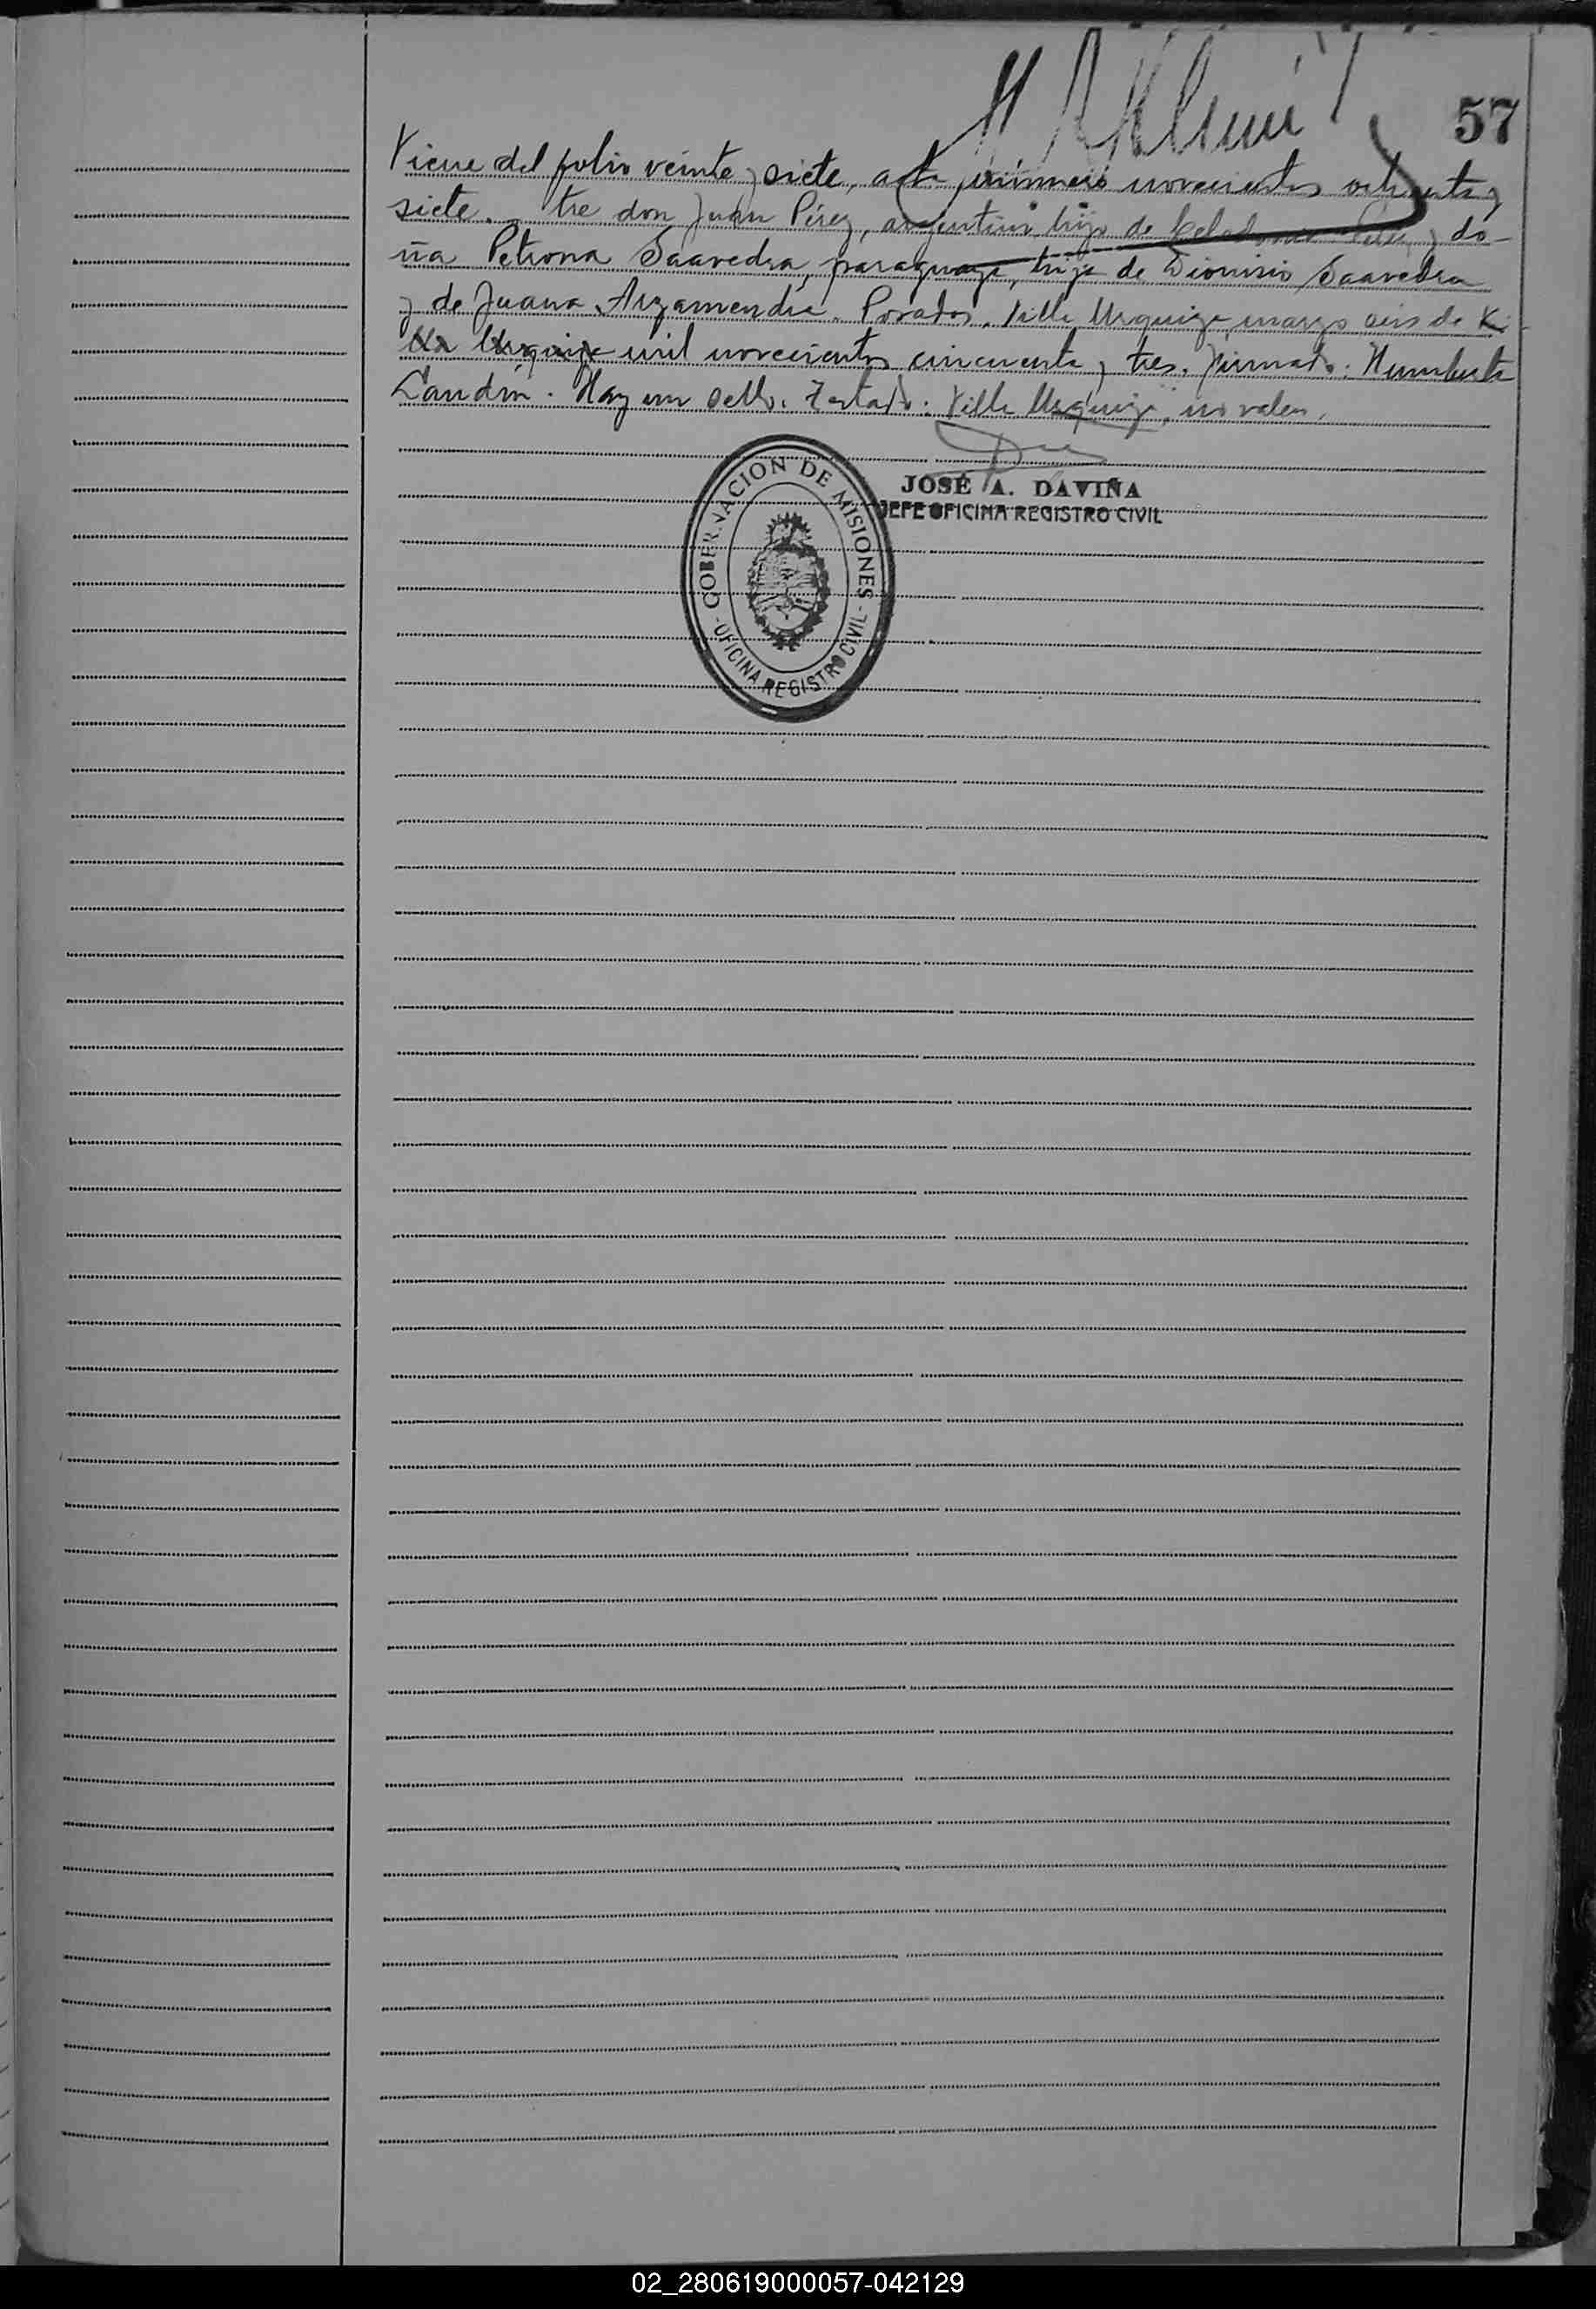 57
Viene del folio veinte y siete, acta número novecientos ochenta y
siete. tre don Juan Pérez, argentino, hijo de Pérez y do-
ña Petrona Saavedra, paraguaya, hija de Dionisio Saavedra
y de Juana Arzamendia. Posadas, Villa Urquiza, marzo seis de
mil novecientos cincuenta y tres. Firmado: Humberto
Landri. Hay un sello. Testado: Villa Urquiza, no valen.
JOSÉ A. DAVIÑA
JEFE OFICINA REGISTRO CIVIL
GOBERNACION DE MISIONES
- OFICINA REGISTRO CIVIL -
02_280619000057-042129